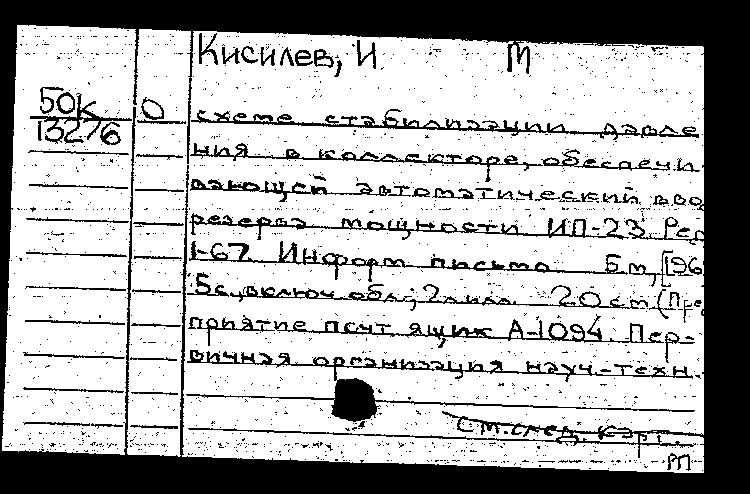 Кисилев, И М
50К
13276
О схеме стабилизации давле
ния в коллекторе, обеспечи-
вающей автоматический ввод
резерва мощности ИП-23 Ред
1-67. Информ письмо Б м, [196
5с., включ обл; 2 л илл. 20 см (Пред
приятие почт ящик А-1094. Пер-
вичная организация науч.-техн.
См. след. карт.
РП